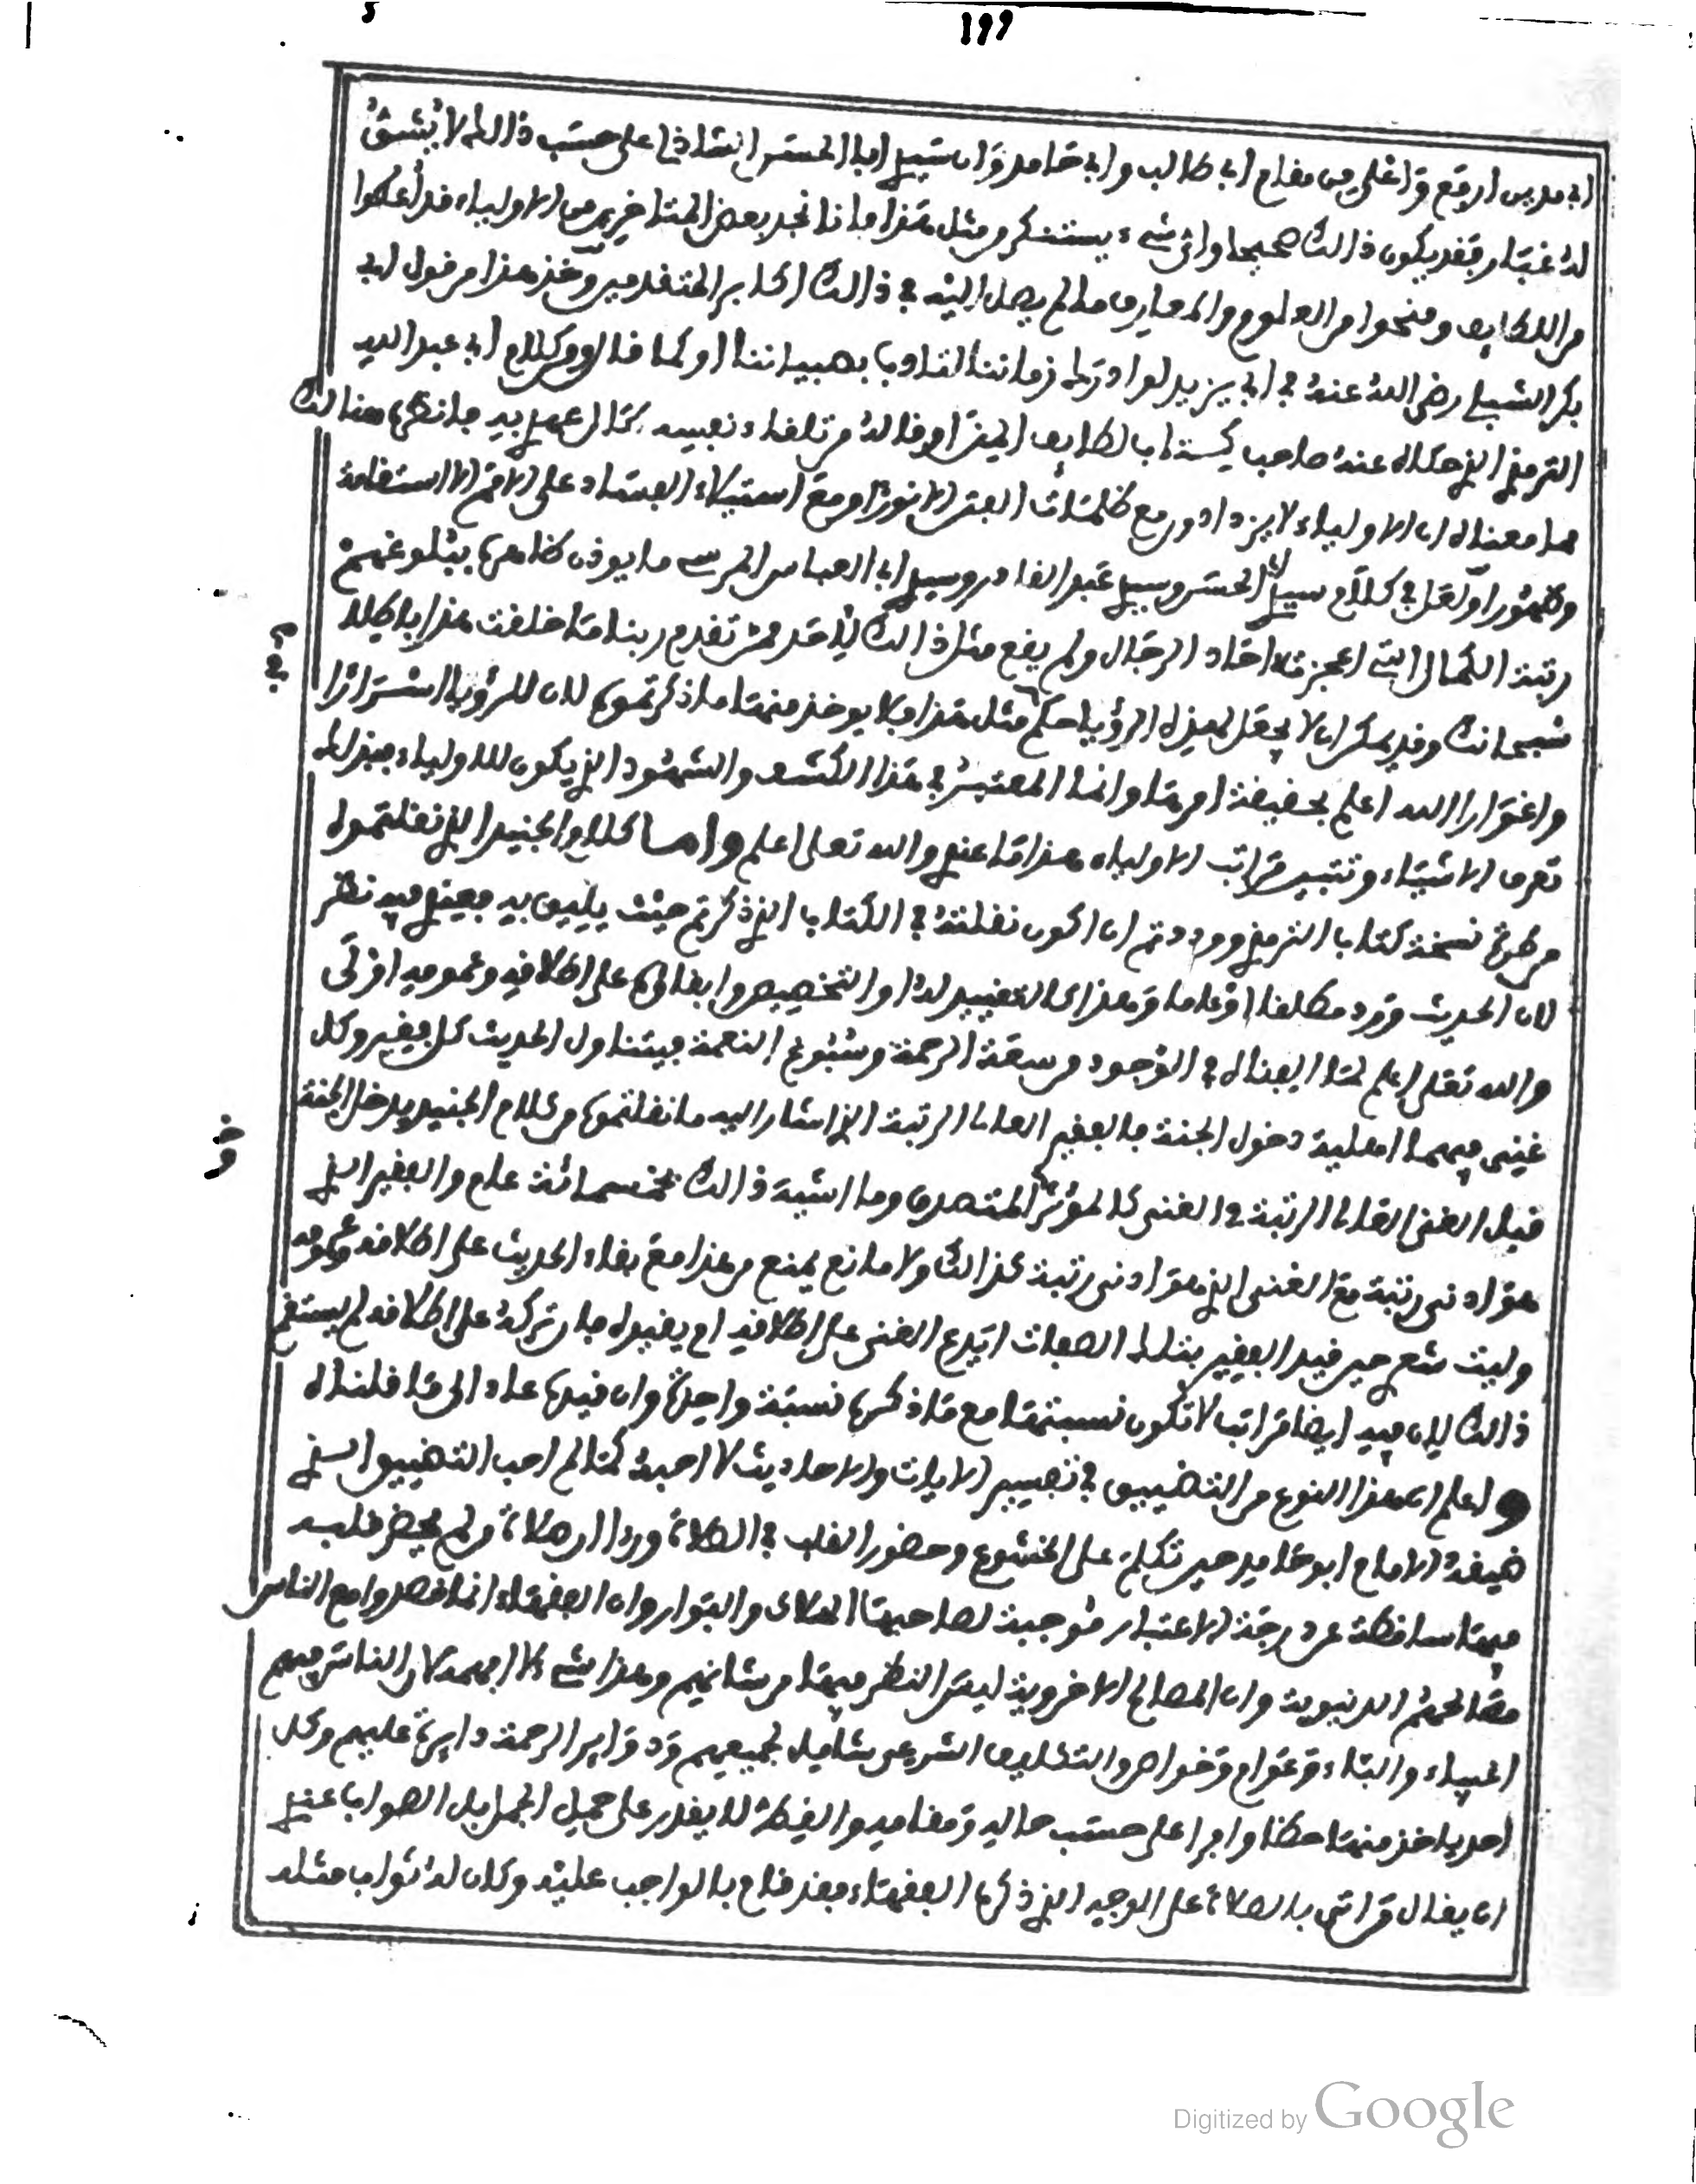 199
ابى مدين ارفع واعلى من مقام ابى طالب وابى حامد وان سيدى ابا الحسن الشاذلى على حسب ذالك لا يشق
له غبار فقد يكون ذالك صحيحا واى شىء يستنكر من مثل هذا فانا نجد بعض المتاخرين من الاولياء قد أعطوا
من اللطايف ومنحوا من العلوم والمعارف ما لم يصل اليه في ذالك اكابر المتقدمين وخذ هذا من قول ابى
بكر الشبلى رضى الله عنه في ابى يزيد لو ادرك زماننا لتاوب بصبياننا او كما قال ومن كلام ابى عبد الله
الترمذى الذى حكاه عنه صاحب كتاب لطايف المنن او قاله من تلقاء نفسه كتال عهد به فانظرها هنالك
مما معناه ان الاولياء لا يزدادون مع ظلمات الفتن الا نورا ومع استيلاء الفساد على الامم الا استقامة
وظهورا ولعل في كلام سيدى ابى الحسن وسيدى عبد القادر وسيدى ابى العباس المرسى ما يوذن ظاهره ببلوغهم
رتبة الكمال التى اعجزت اخاد الرجال ولم يقع مثل ذالك لأحد ممن تقدم ربنا ما خلقت هذا باطلا
سبحانك وقد يمكن ان لا يجعل لهذه الرؤيا حكم مثل هذا ولا يوخذ منها ما ذكرتموه لان للرؤيا اسرارا
واغوارا الله اعلم بحقيقة امرها وانما المعتبر في هذا الكشف والشهود الذى يكون للاولياء فبذلك
تعرف الاشياء وتتبين مراتب الاولياء هذا ما عندى والله تعلى اعلم واما كلام الجنيد الذى نقلتموه
من طرة نسخة كتاب الترمذى ووددتم ان اكون نقلته في الكتاب الذى ذكرتم حيث يليق به فعندى فيه نظر
لان الحديث ورد مطلقا او عاما وهذا كالتقييد له او التخصيص وابقاؤه على اطلاقه وعمومه اولى
والله تعلى اعلم لما ابقناه في الوجود من سعة الرحمة وشيوع النعمة فيتناول الحديث كل فقير وكل
غنى فيهما اهلية دخول الجنة فالفقير العالى الرتبة الذى اشار اليه ما نقلتموه من كلام الجنيد يدخل الجنة
قبل الغنى العالى الرتبة في الغنى كالموثر المتصدق وما اشبه ذالك بخمسمائة عام والفقير الذى
هو ادنى رتبة مع الغنى الذى هو ادنى رتبة كذالك ولا مانع يمنع من هذا مع بقاء الحديث على اطلاقه وعمومه
وليت شعرى حين قيد الفقير بتلك الصفات ايدع الغنى على اطلاقه ام يقيده فان تركه على اطلاقه لم يستقم
ذالك لان فيه ايضا مراتب لا تكون نسبتها مع ما ذكره نسبة واحدة وان قيده عاد الى ما قلناه
واعلم ان هذا النوع من التضييق في تفسير الايات والاحاديث لا احبه كما لم احب التضييق الذى
ضيقه الامام ابو حامد حين تكلم على الخشوع وحضور القلب في الصلاة وردا ان صلاة من لم يحضر قلبه
فيها ساقطة عن درجة الاعتبار موجبة لصاحبها الهلاك والبوار وان الفقهاء انما قصروا مع الناس
مصالحهم الدنيوية وان المصالح الاخروية ليس النظر فيها من شانهم وهذا شىء لا افهمه لان الناس فيهم
اغبياء والباء وعوام وخواص والتكليف الشرعى شامل لجميعهم ودواير الرحمة دايرة عليهم وكل
احد ياخذ منها حظا وافرا على حسب حاله ومقامه والغيظة لا يقدر على حميل الجمل بل الصواب عندى
ان يقال من اتى بالصلاة على الوجه الذى ذكره الفقهاء فقد قام بالواجب عليه وكان له ثواب مثله
Digitized by Google